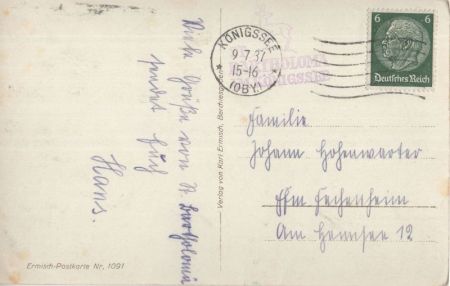 Viele Grüße von St Bartholomä
sendet Euch
Hans.
Ermisch-Postkarte Nr. 1091
Verlag von Karl Ermisch, Berchtesgaden
KÖNIGSSEE
9.7.37
15-16
(OBY)
BARTHOLOMÄ
KÖNIGSSEE
6 6
Deutsches Reich
Familie
Johann Hohenwarter
Ffm Fechenheim
Am Hennsee 12